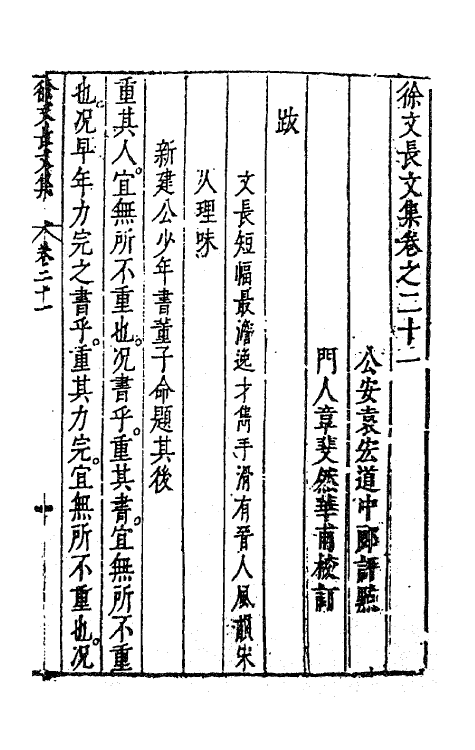 徐文長文集卷之二十一
公安袁宏道中郎評點
門人章斐然華甫校訂
跋
文長短幅最澹逸才雋手滑有晉人風韻宋
人理味
新建公少年書董子命題其後
重其人。宜無所不重也。况書乎。重其書。宜無所不重
也。况早年力完之書乎。重其力完。宜無所不重也。况
徐文長文集 卷二十一 一